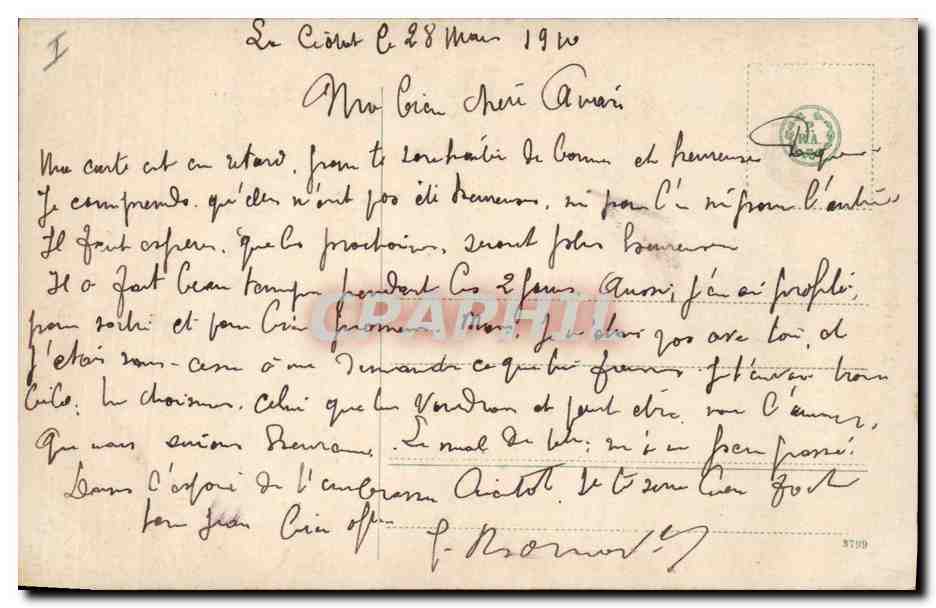 I
La Ciotat le 28 Mars 1910
Ma bien chère Amari
P.
R.A.
Ma carte est en retard, pour te souhaiter de bonnes et heureuses Pâques
Je comprends qu'elles n'ont pas été heureuses, ni pour l'un ni pour l'autre
Il faut espérer que les prochaines seront plus heureuses
Il a fait beau temps pendant ces 2 jours. Aussi, j'en ai profité,
pour sortir et pour bien Mais, je n'étais pas avec toi, et
j'étais sans-cesse à me demander ce que tu Je t'envoie trois
tu choisiras celui que tu voudras et peut être
Que nous serions heureux. Le mal de tête m'a un peu passé.
Dans l'espoir de t'embrasser bientôt. Je te serre bien fort
ton Jean bien aff
J.
3799
CPAPHIL